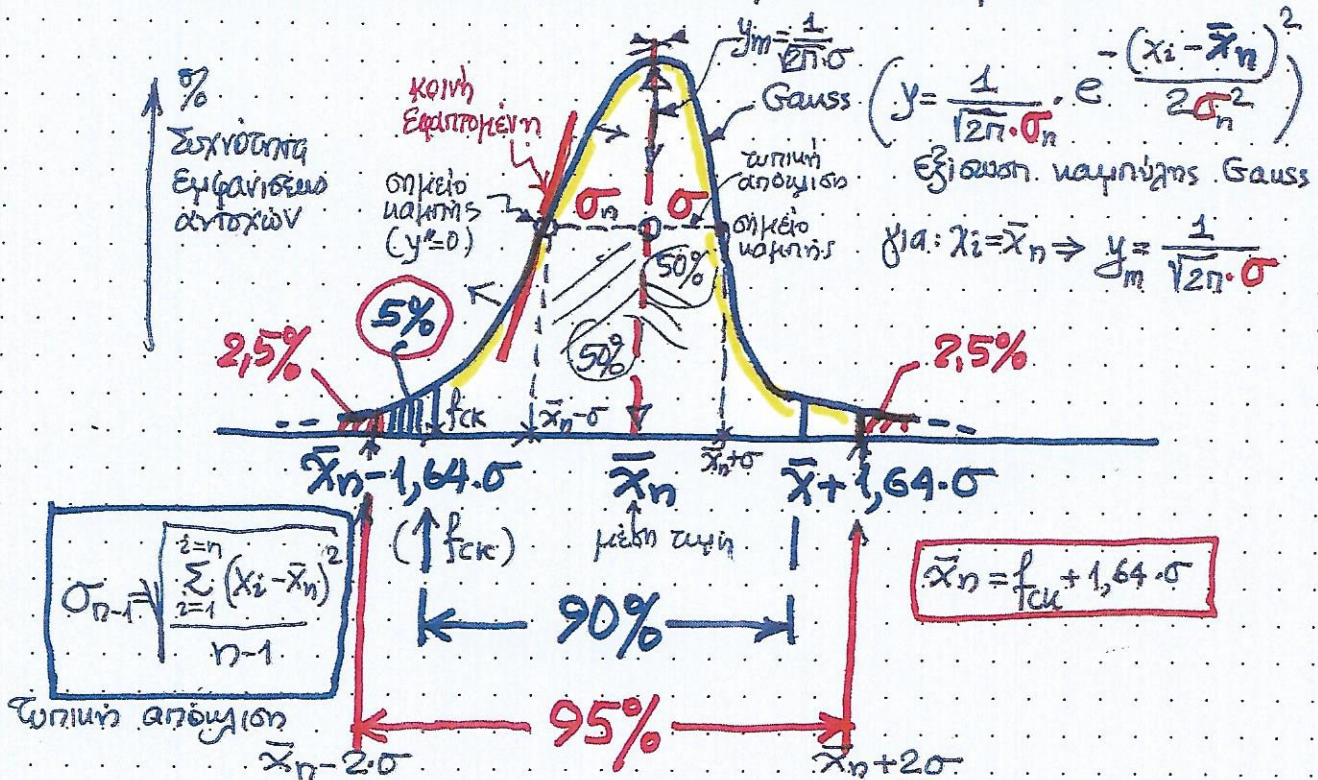 %
Συχνότητα
Εμφανίσεως
αντοχών
κοινή
Εφαπτομένη
σημείο
καμπής
(y''=0)
y_m = 1/(√2π·σ)
Gauss
(y = 1/(√2π·σ_n) · e^(-(x_i - x̄_n)²/(2σ_n²)))
εξίσωση καμπύλης Gauss
τυπική
απόκλιση
σ_n
σ
σημείο
καμπής
για: x_i = x̄_n ⇒ y_m = 1/(√2π·σ)
50%
50%
5%
2,5%
2,5%
f_ck
x̄_n-σ
x̄_n+σ
x̄_n-1,64·σ
x̄_n
x̄+1,64·σ
(f_ck)
μέση τιμή
σ_n-1 = √(Σ_{i=1}^{i=n} (x_i - x̄_n)² / (n-1))
x̄_n = f_ck + 1,64·σ
90%
Τυπική απόκλιση
95%
x̄_n-2·σ
x̄_n+2σ